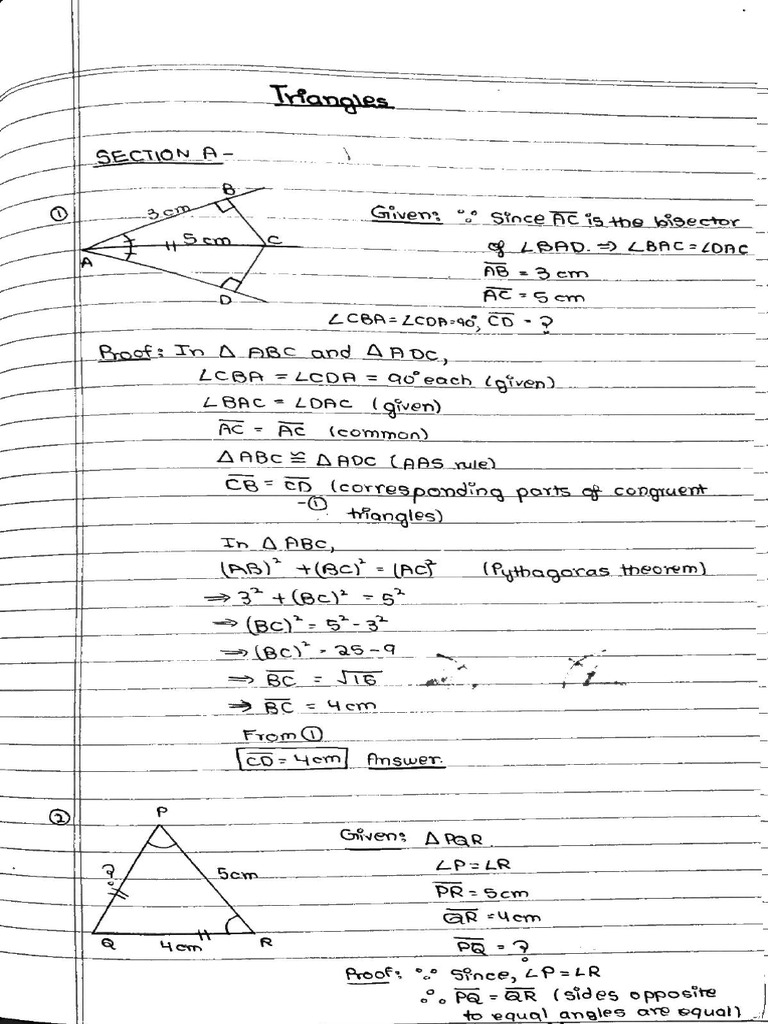 Triangles
SECTION A-
①
B
3cm
5cm
C
A
D
Given: ∵ Since A̅C̅ is the bisector
of ∠BAD. ⇒ ∠BAC = ∠DAC
A̅B̅ = 3cm
A̅C̅ = 5cm
∠CBA = ∠CDA = 90°, C̅D̅ - ?
Proof: In △ ABC and △ADC,
∠CBA = ∠CDA = 90° each (given)
∠BAC = ∠DAC (given)
A̅C̅ = A̅C̅ (common)
△ABC ≅ △ADC (AAS rule)
C̅B̅ = C̅D̅ (corresponding parts of congruent
-① triangles)
In △ABC,
(AB)² + (BC)² = (AC)² (Pythagoras theorem)
⇒ 3² + (BC)² = 5²
⇒ (BC)² = 5² - 3²
⇒ (BC)² = 25 - 9
⇒ B̅C̅ = √16
⇒ B̅C̅ = 4cm
From ①
C̅D̅ = 4cm Answer.
②
P
?
5cm
Q
4cm
R
Given: △PQR
∠P = ∠R
P̅R̅ = 5cm
Q̅R̅ = 4cm
P̅Q̅ = ?
Proof: ∵ Since, ∠P = ∠R
∴ P̅Q̅ = Q̅R̅ (sides opposite
to equal angles are equal)